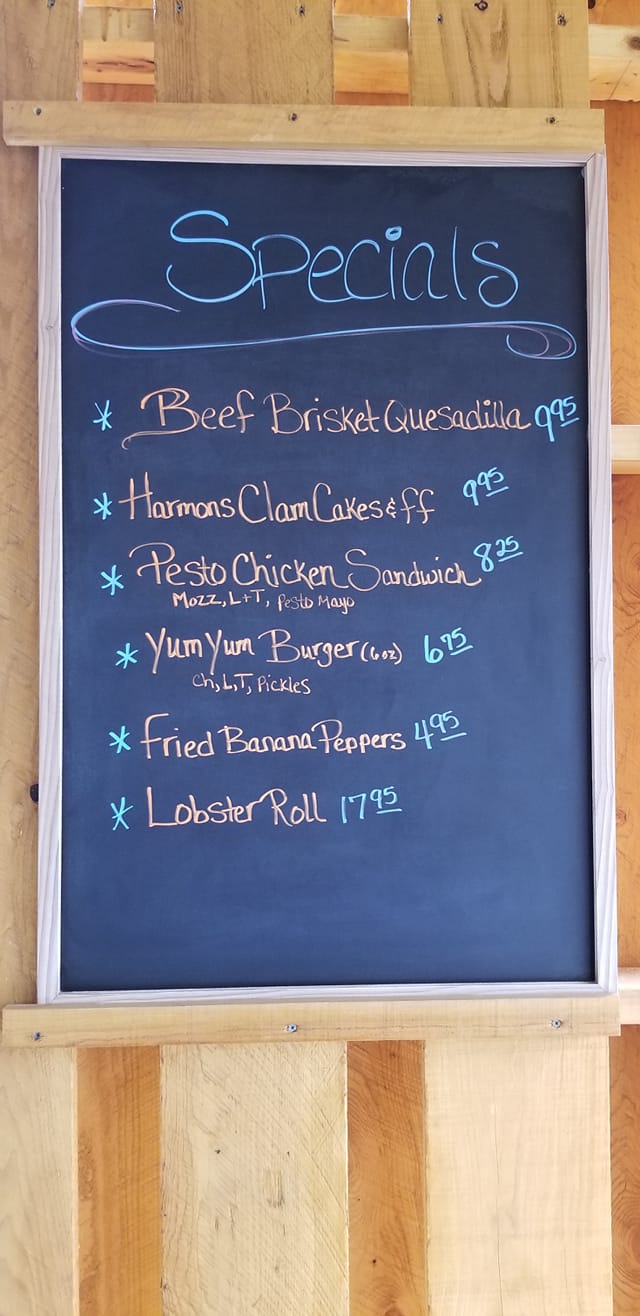 Specials
* Beef Brisket Quesadilla 9.95
* Harmons Clam Cakes & ff 9.95
* Pesto Chicken Sandwich 8.25
Mozz, L+T, Pesto Mayo
* Yum Yum Burger (6 oz) 6.75
Ch, L, T, Pickles
* Fried Banana Peppers 4.95
* Lobster Roll 17.95